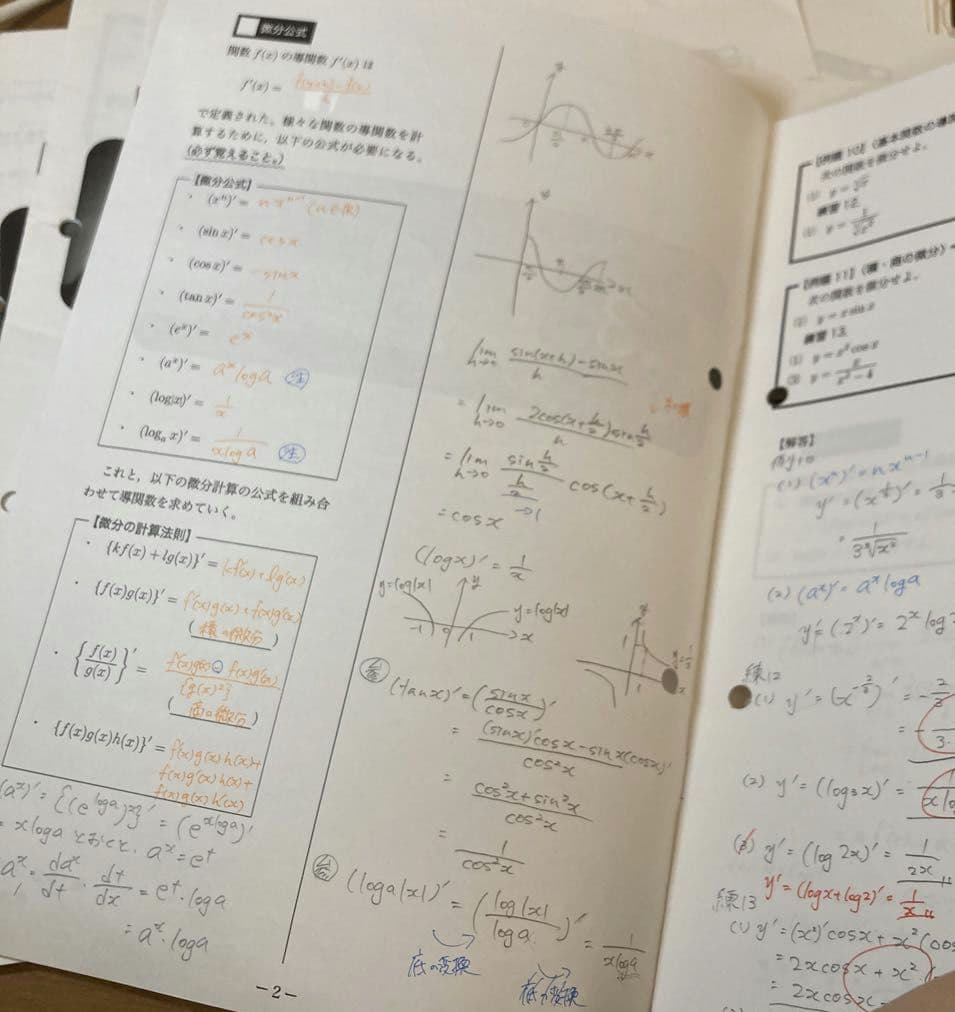 微分公式
関数 f(x) の導関数 f'(x) は
f'(x) = f(x+h)-f(x) / h
で定義された。様々な関数の導関数を計
算するために、以下の公式が必要になる。
(必ず覚えること。)
【微分公式】
・ (xⁿ)' = nxⁿ⁻¹
・ (sin x)' = cosx
・ (cos x)' = -sinx
・ (tan x)' = 1/cos²x
・ (eˣ)' = eˣ
・ (aˣ)' = aˣ loga
・ (log|x|)' = 1/x
・ (logₐ x)' = 1/xloga
これと、以下の微分計算の公式を組み合
わせて導関数を求めていく。
【微分の計算法則】
・ {kf(x) + lg(x)}' = kf'(x)+lg'(x)
・ {f(x)g(x)}' = f'(x)g(x)+f(x)g'(x)
(積の微分)
・ {f(x)/g(x)}' = f'(x)g(x)-f(x)g'(x) / {g(x)²}
(商の微分)
・ {f(x)g(x)h(x)}' = f'(x)g(x)h(x)+
f(x)g'(x)h(x)+
f(x)g(x)h'(x)
(aˣ)' = {(e^loga)ˣ}' = (e^xloga)'
= xloga とおくと、aˣ=eᵗ
aˣ = daˣ/dt · dt/dx = eᵗ · loga
= aˣ · loga
lim h→0 sin(x+h)-sinx / h
= lim h→0 2cos(x+h/2)sin h/2 / h
= lim h→0 sin h/2 / h/2 cos(x+h/2)
→1
= cosx
(logx)' = 1/x
y=log|x|
y
y=log|x|
-1 0 1 x
参
(tanx)' = (sinx/cosx)'
= (sinx)'cosx-sinx(cosx)' / cos²x
= cos²x+sin²x / cos²x
= 1/cos²x
参
(loga|x|)' = (log|x|/loga)' = 1/xloga
底の変換
底の変換
-2-
【例題 10】(基本関数の導
次の関数を微分せよ。
練習 12
【例題 11】(積・商の微分)
次の関数を微分せよ。
(1) y = x sin x
練習 13
(1) y = x² cos x
(2) y = x/x²-4
【解答】
例題10
(1) (xⁿ)' = nxⁿ⁻¹
y' = (x^1/3)' = 1/3
= 1/3∛x²
(2) (aˣ)' = aˣ loga
y' = (2ˣ)' = 2ˣ log
練12
(1) y' = (x^-2/3)' = -2/3
= - 3.
(2) y' = (log₃x)' = 1/xlo
(3) y' = (log2x)' = 1/2x
y' = (logx+log2)' = 1/x
練13
(1) y' = (x²)'cosx + x²(cos
= 2xcosx + x²
= 2xcosx -